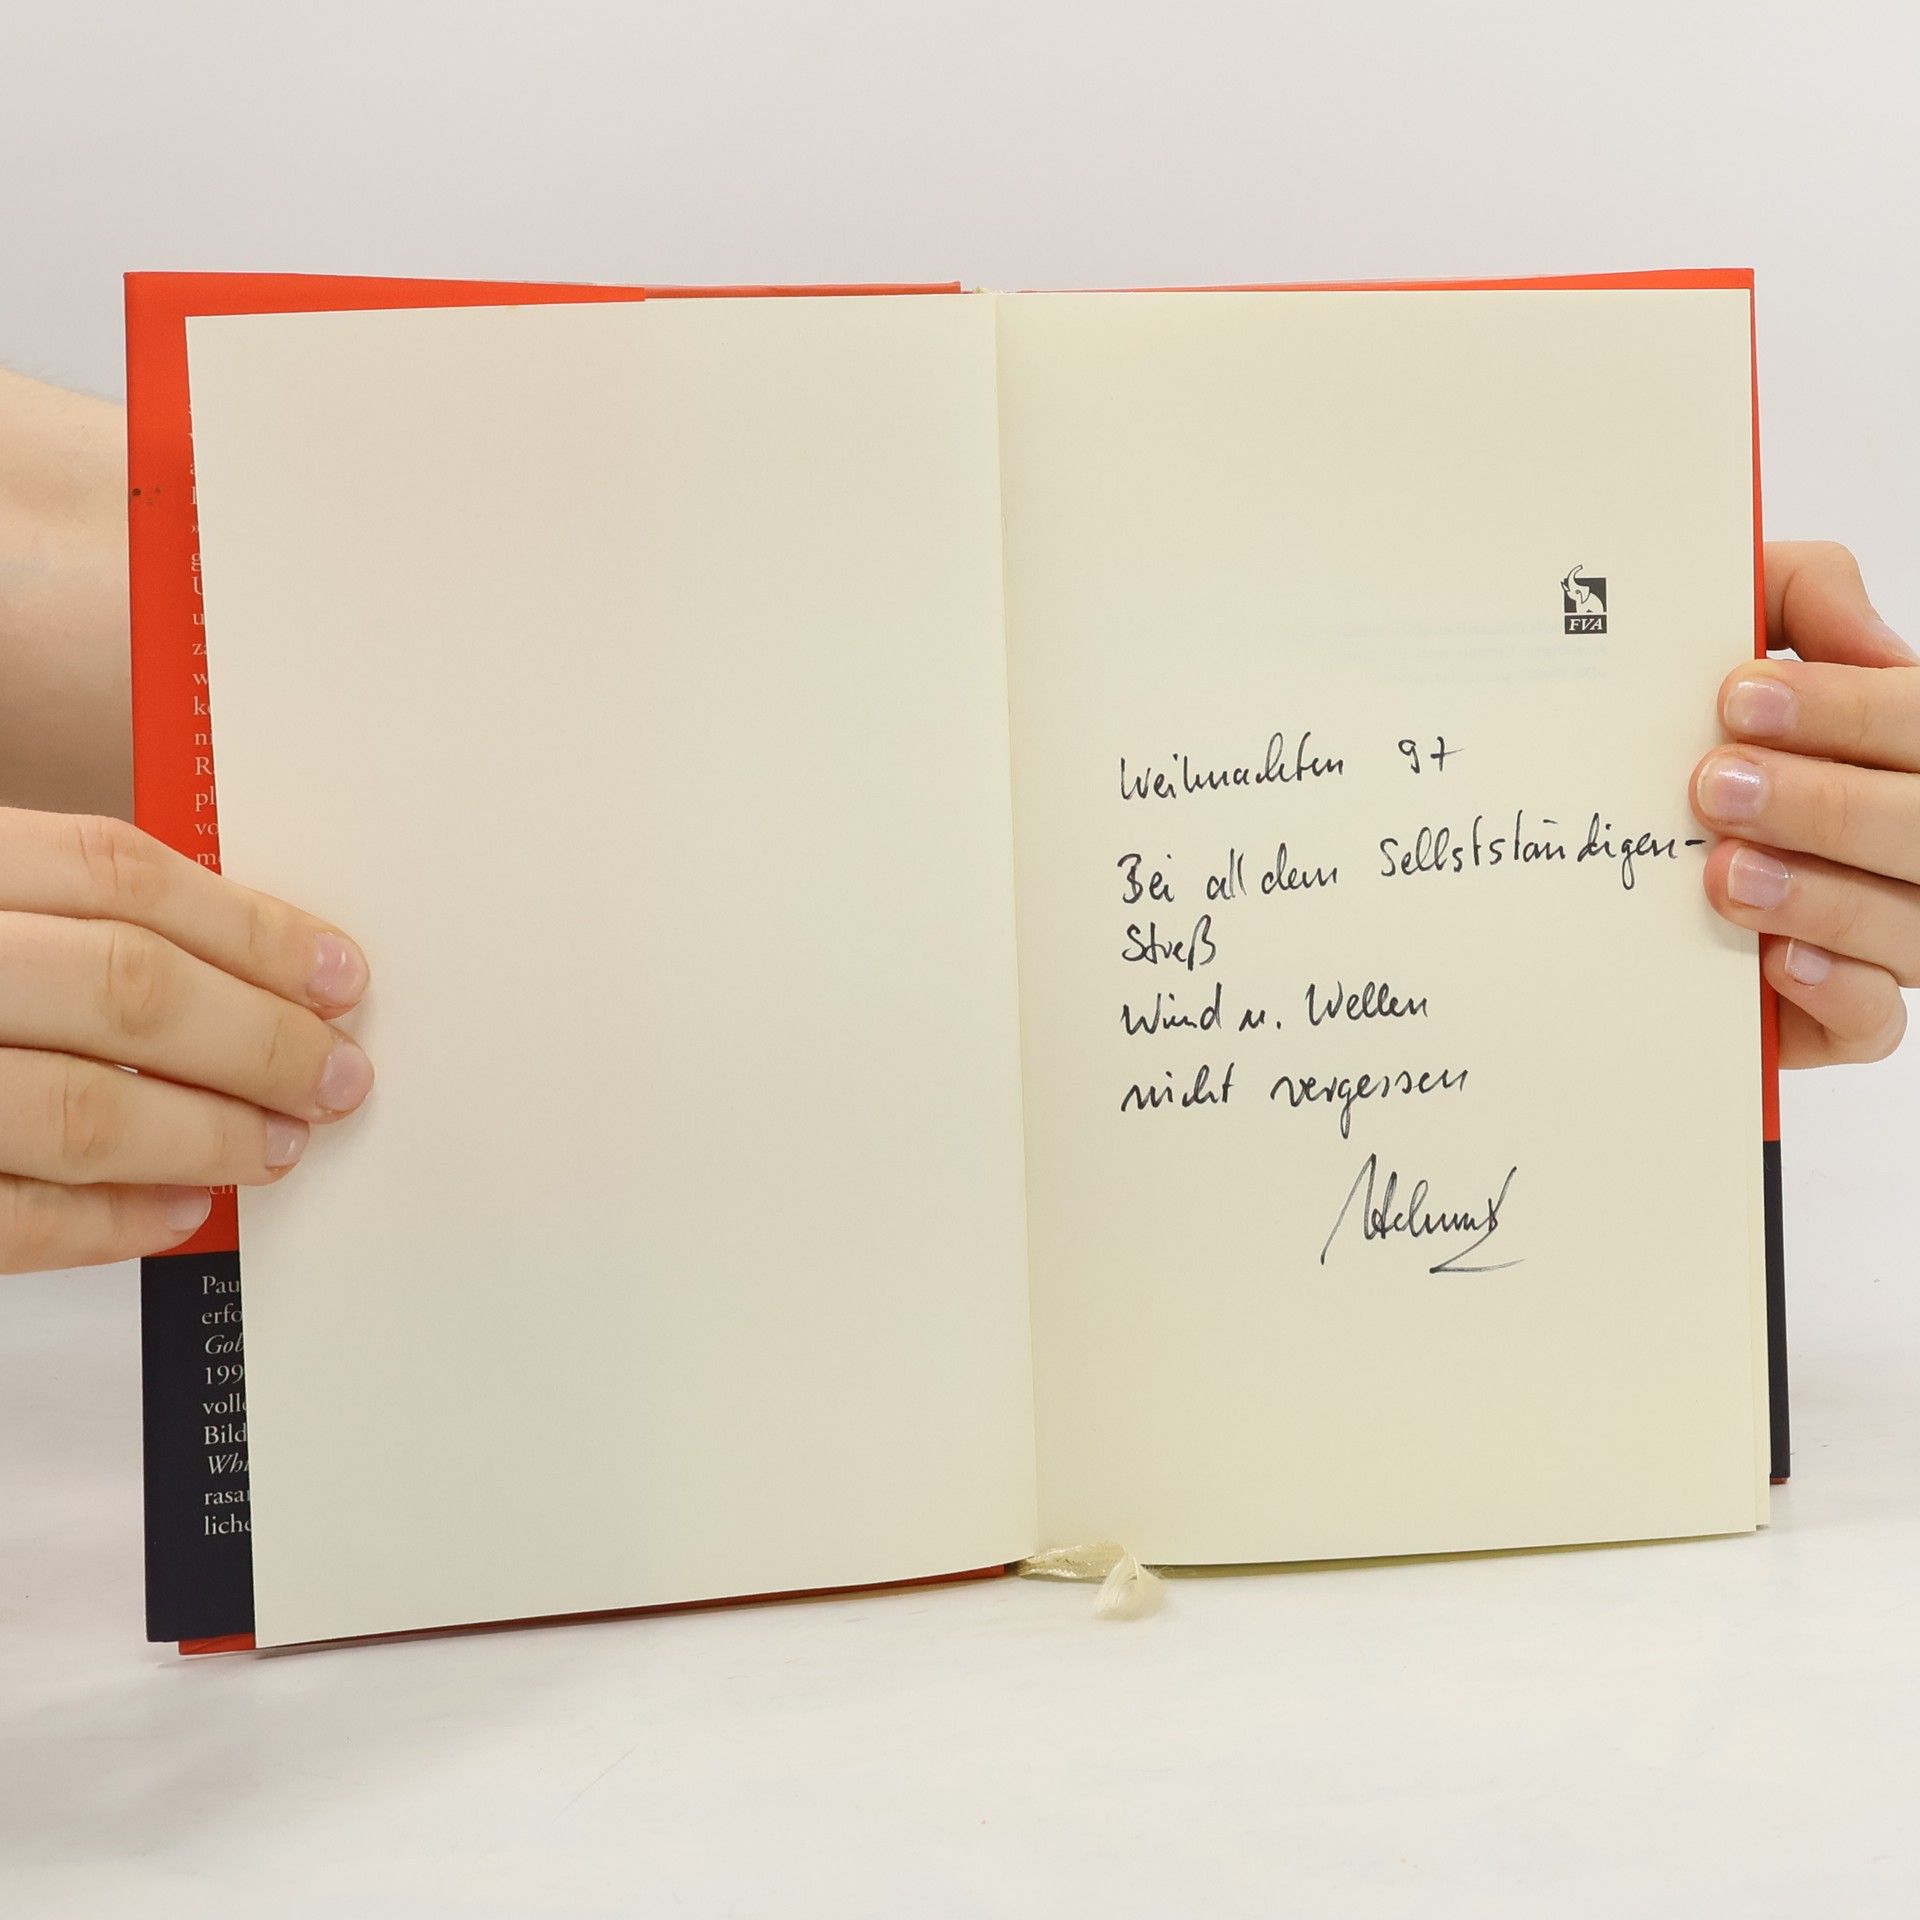 FVA
Weihnachten 97
Bei all dem Selbstständigen-
Streß
Wind u. Wellen
nicht vergessen
Helmut
g
U
u
w
ni
R
pl
vo
Pau
erfo
Gob
199
voll
Bild
Whi
rasa
lich